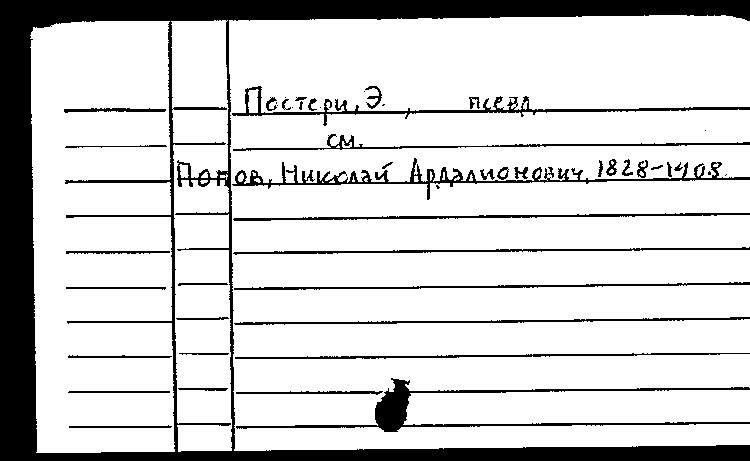 Постери, Э., псевд.
см.
Попов, Николай Ардалионович, 1828-1908